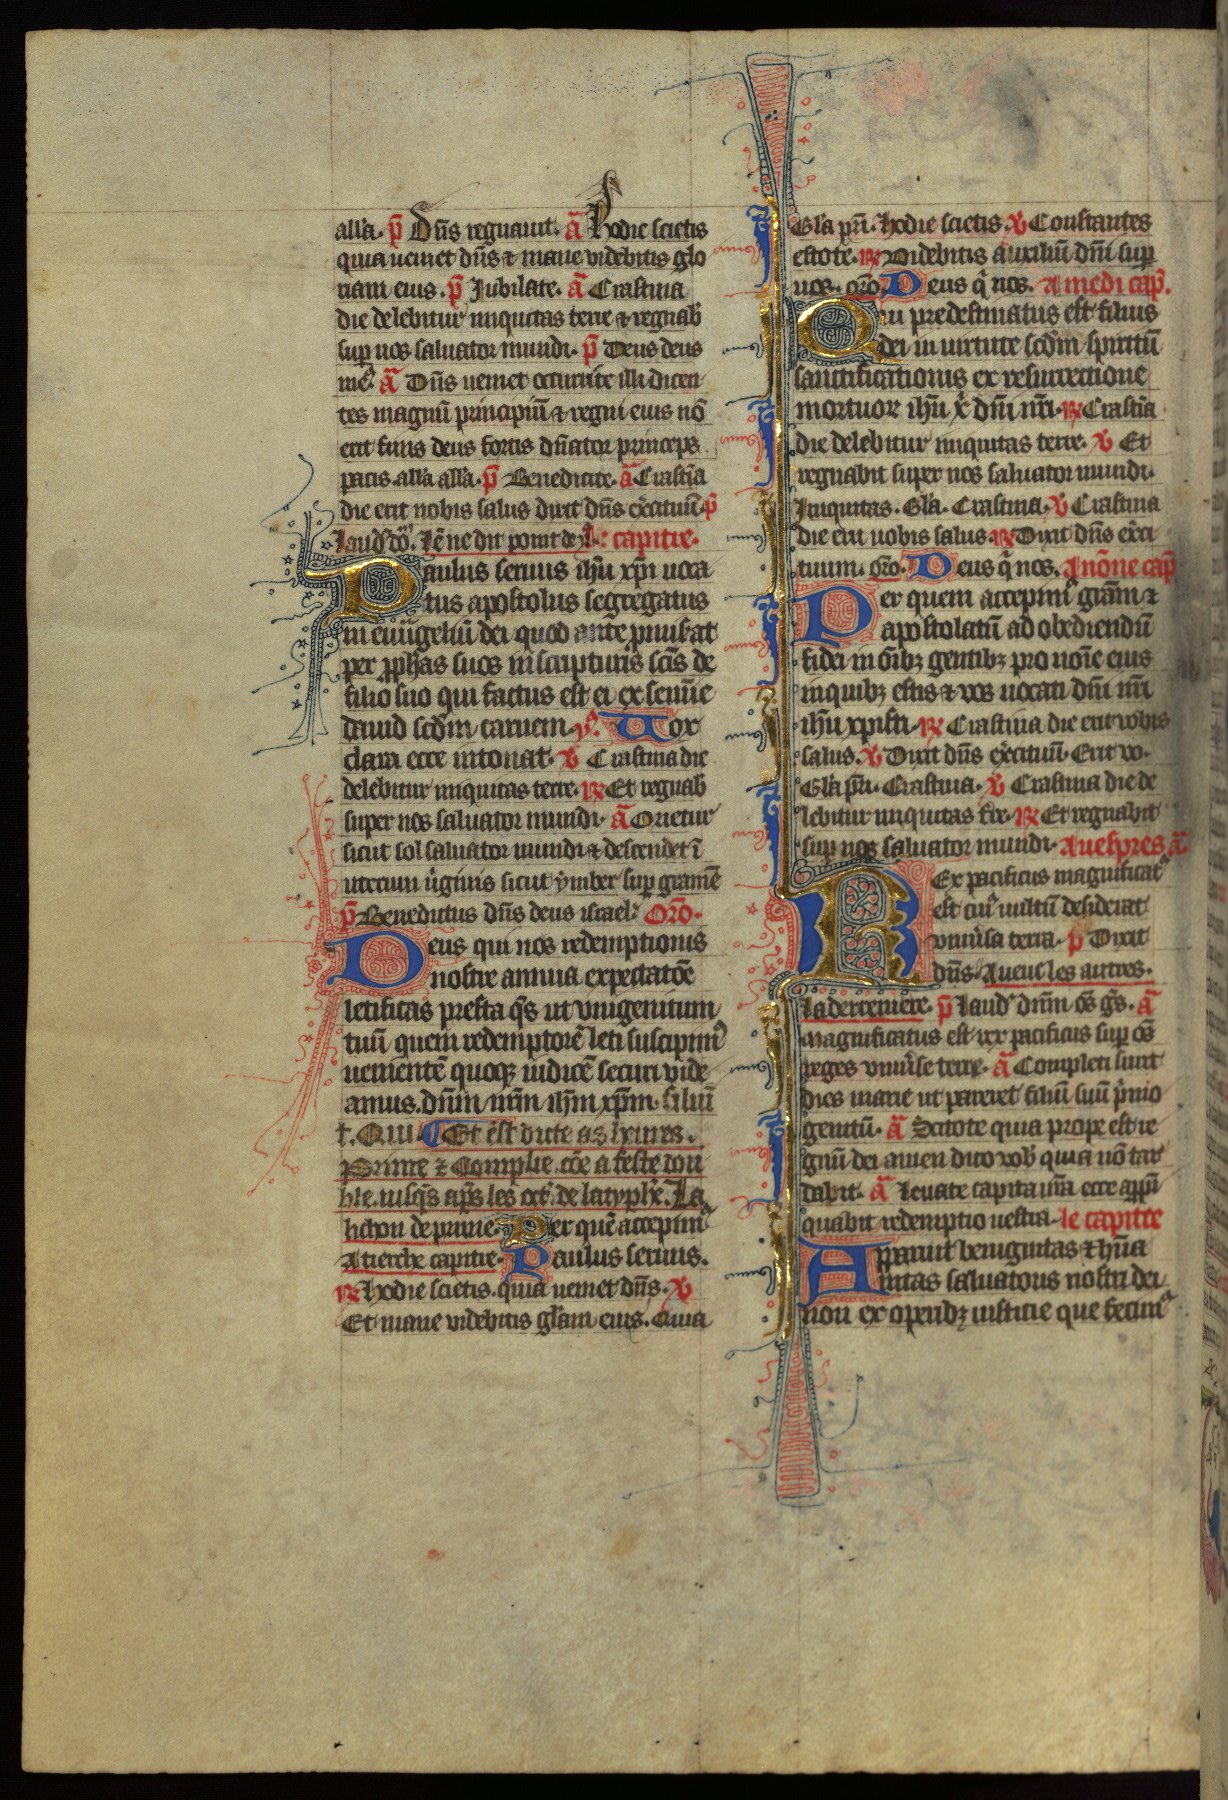 all'a. p̃ Dñs regnauit. ã Hodie scietis
quia ueniet dñs ⁊ mane videbitis glo
riam eius. p̃ Jubilate. ã Crastina
die delebitur iniquitas terre ⁊ regnab̓
sup nos saluator mundi. p̃ Deus deus
me᷒. ã Dñs ueniet occurrite illi dicen
tes magnū principiū ⁊ regni eius nō
erit finis deus fortis dñator princeps
pacis all'a all'a. p̃ Benedicite. ã Crastīa
die erit nobis salus dixit dñs exc̓ituū. p̃
Laud' dō. capitre.
Paulus seruus ihū xp̄i uoca
tus apostolus segregatus
in euūgeliū dei quod ante p̄mis̓at
per pp̄has suos in scripturis sc̄is de
filio suo qui factus est ei ex semīe
dauid scd̄m carnem. Uox
clara ecce intonat. ℣ Crastina die
delebitur iniquitas terre. ℟ Et regnab̓
super nos saluator mundi. ã Orietur
sicut sol saluator mundi ⁊ descendet ī
uterum uirginis sicut ymber sup gramē
p̃ Benedictus dñs deus israel'. Oro.
Deus qui nos redemptionis
nostre annua expectatōe
letificas presta q̄s ut vnigenitum
tuū quem redemptorē leti suscipim᷒
uenientē quoq; iudicē securi vide
amus. dñm nr̄m ihm̄ xp̄m. filiū
t. Qui. ¶ Et est dite as heures.
Prime ⁊ Complie cōe a feste dou
ble. iusq̄s ap̄s les oct̓. de la typh'e. La
lichon de prime. Per quē accepim᷒
A tierche capitre. Paulus seruus.
℟ Hodie scietis. quia ueniet dñs. ℣
Et mane videbitis gl̄am eius. Quia
Gl'a pr̄i. Hodie scietis. ℣ Constantes
estote. ℟ Videbitis auxiliū dñi sup
uos. oro. Deus q̄ nos. A medi cap̄.
Qui predestinatus est filius
dei in uirtute scd̄m spiritū
sanctificationis ex resurrectione
mortuoꝝ ihū x̄ dñi nr̄i. ℟ Crastīa
die delebitur iniquitas terre. ℣ Et
regnabit super nos saluator mundi.
Iniquitas. Gl'a. Crastina. ℣ Crastina
die erit uobis salus. ℟ Dixit dñs exc̓i
tuum. oro. Deus q̄ nos. A nōne cap̄
Per quem accepim᷒ grām ⁊
apostolatū ad obediendū
fidei in oīb; gentib; pro noīe eius
in quib; estis ⁊ vos uocati dñi nr̄i
ihū xpisti. ℟ Crastina die erit vobis
salus. ℣ Dixit dñs exc̓ituū. Erit vo.
Gl'a pr̄i. Crastina. ℣ Crastina die de
lebitur iniquitas tr̄e. ℟ Et regnabit
sup nos saluator mundi. A uespres ã
Rex pacificus magnificat᷒
est cui᷒ uultū desiderat
vniu̓sa terra. p̃ Dixit
dñs. Auenc les autres.
la derreniere. p̃ Laud' dñm ōs g̓s. ã
Magnificatus est rex pacificus sup ōs
reges vniu̓se terre. ã Completi sunt
dies marie ut pareret filiū suū p̓mo
genitū. ã Scitote quia prope est re
gnū dei amen dico vob̓ quia nō tar
dabit. ã Leuate capita ur̄a ecce app̄pi
quabit redemptio uestra. le capitre
Apparuit benignitas ⁊ hūa
nitas saluatoris nostri dei
non ex operib; iusticie que fecim᷒